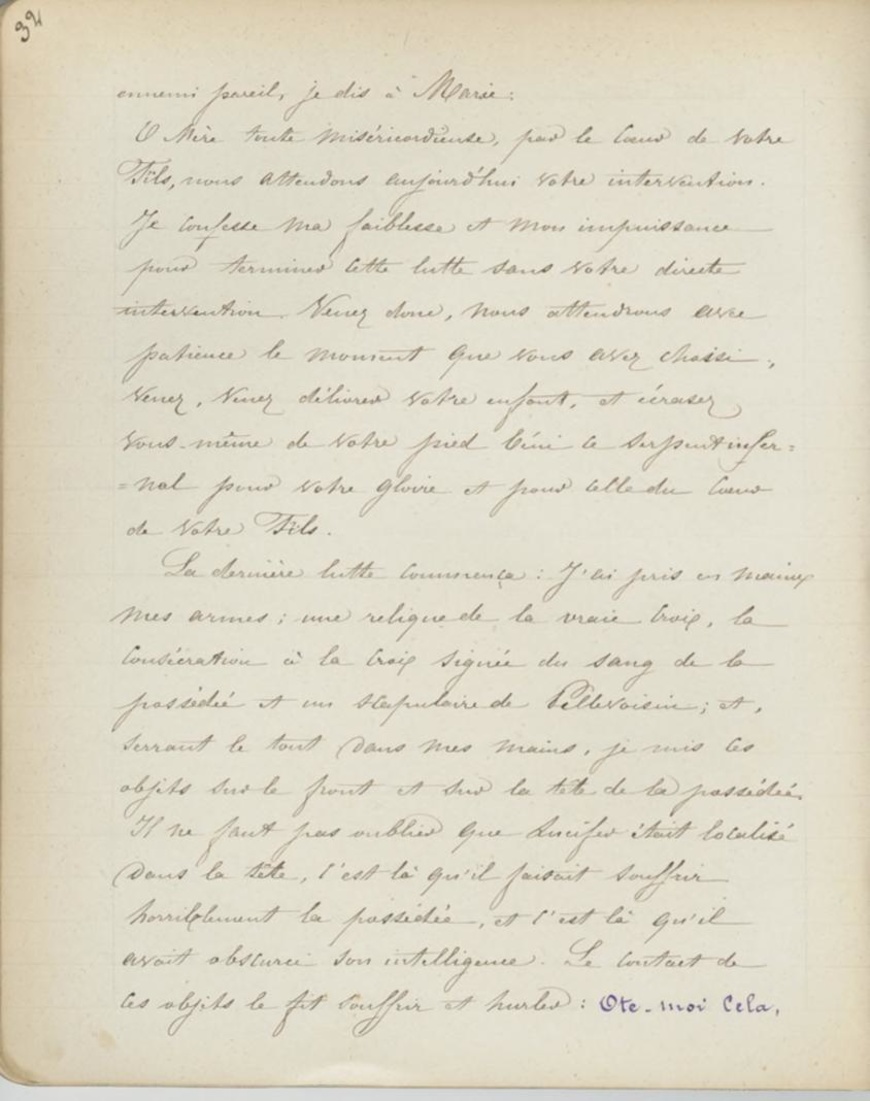 32
ennemi pareil, je dis à Marie :
O Mère toute miséricordieuse, par le Cœur de votre
Fils, nous attendons aujourd'hui votre intervention.
Je confesse ma faiblesse et mon impuissance
pour terminer cette lutte sans votre directe
intervention. Venez donc, nous attendrons avec
patience le moment que vous avez choisi ;
venez, venez délivrer votre enfant, et écrasez
vous-même de votre pied béni ce serpent infer=
=nal pour votre gloire et pour celle du Cœur
de votre Fils.
La dernière lutte commença : J'ai pris en mains
mes armes ; une relique de la vraie Croix, la
Consécration à la Croix signée du sang de la
possédée et un scapulaire de Pellevoisin ; et,
serrant le tout dans mes mains, je mis ces
objets sur le front et sur la tête de la possédée.
Il ne faut pas oublier que Lucifer était localisé
dans la tête, c'est là qu'il faisait souffrir
horriblement la possédée, et c'est là qu'il
avait obscurci son intelligence. Le contact de
ces objets le fit souffrir et hurler : Ote-moi cela,